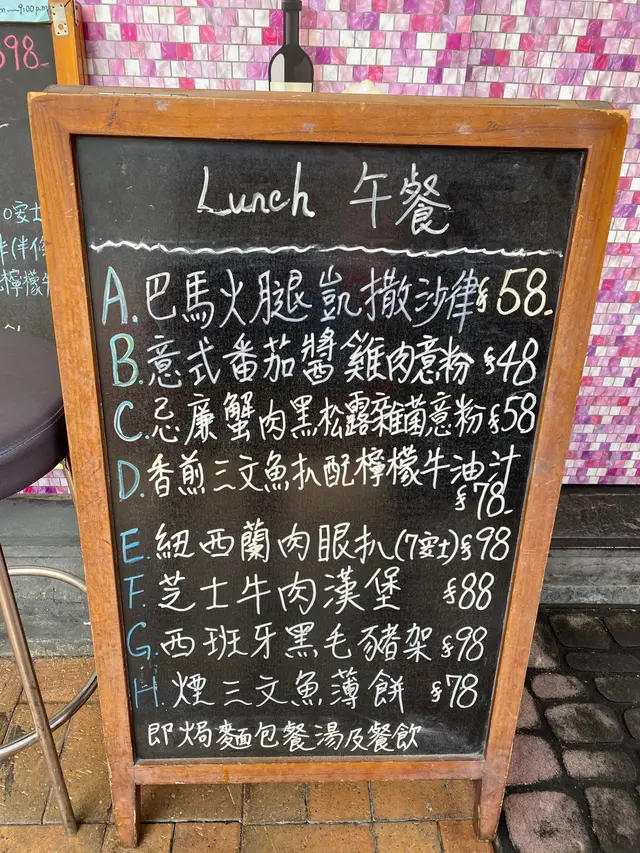 —9:00p.m
98.
Lunch 午餐
A. 巴馬火腿凱撒沙律 $58.
B. 意式番茄醬雞肉意粉 $48
C. 忌廉蟹肉黑松露雜菌意粉 $58
D. 香煎三文魚扒配檸檬牛油汁
$78.
E. 紐西蘭肉眼扒(7安士) $98
F. 芝士牛肉漢堡 $88
G. 西班牙黑毛豬架 $98
H. 煙三文魚薄餅 $78
即焗麵包餐湯及餐飲